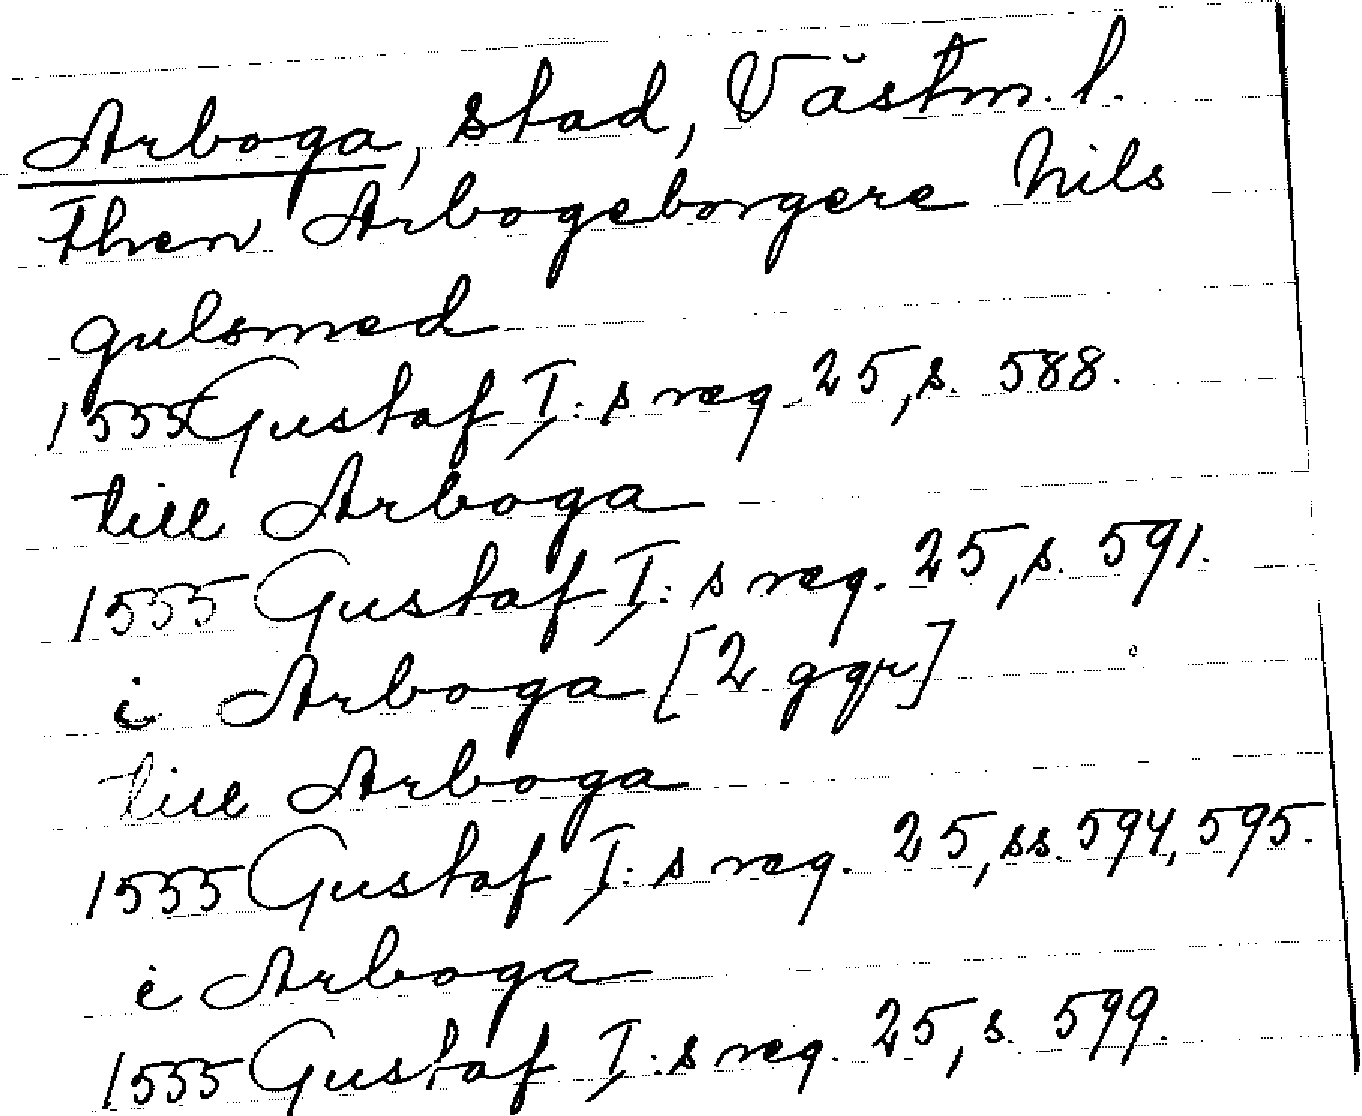 Arboga, stad, Västm. l.
Then Arbogeborgere Nils
gulsmed
1555 Gustaf I:s reg. 25, s. 588.
till Arboga
1555 Gustaf I:s reg. 25, s. 591.
i Arboga [2 ggr]
till Arboga
1555 Gustaf I:s reg. 25, ss. 594, 595.
i Arboga
1555 Gustaf I:s reg. 25, s. 599.